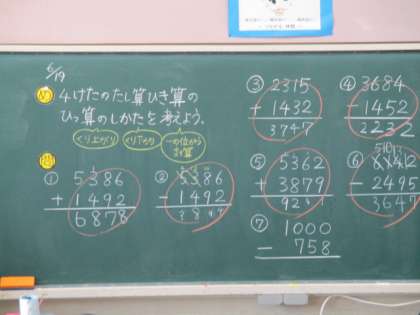 6/19
め 4けたのたし算ひき算の
ひっ算のしかたを考えよう。
くり上がり くり下がり 一の位から計算
① 5386
+ 1492
6878
② 5386
- 1492
③ 2315
+ 1432
3747
④ 3684
- 1452
2232
⑤ 5362
+ 3879
⑥
- 2495
3647
⑦ 1000
- 758